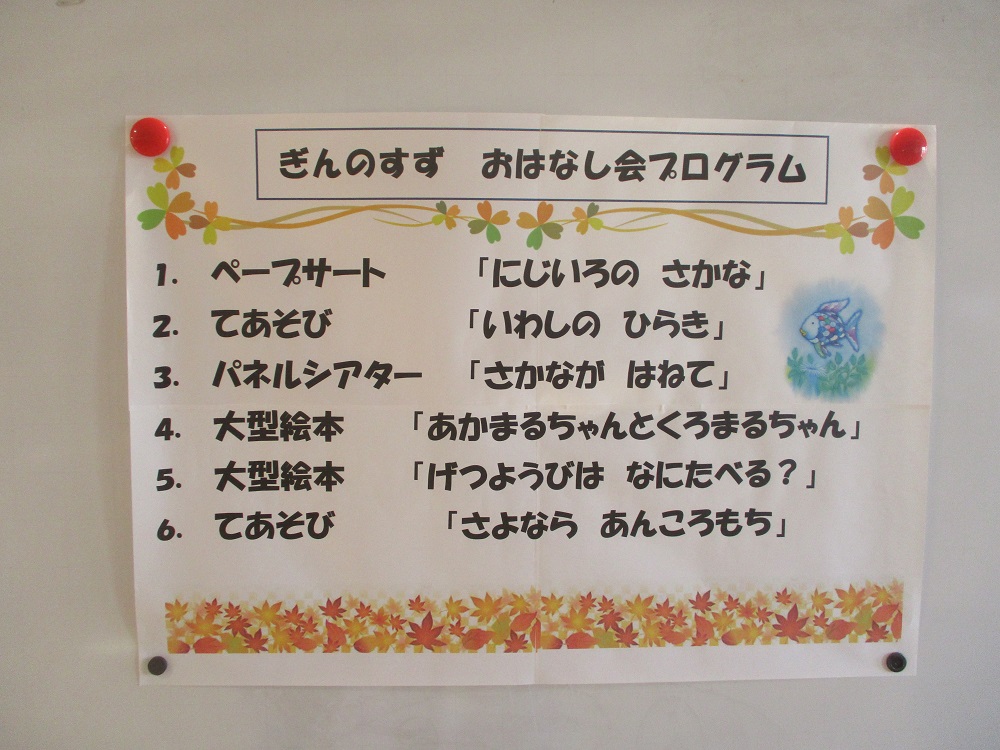 ぎんのすず　おはなし会プログラム
1.　ペープサート　「にじいろの　さかな」
2.　てあそび　「いわしの　ひらき」
3.　パネルシアター　「さかなが　はねて」
4.　大型絵本　「あかまるちゃんとくろまるちゃん」
5.　大型絵本　「げつようびは　なにたべる？」
6.　てあそび　「さよなら　あんころもち」